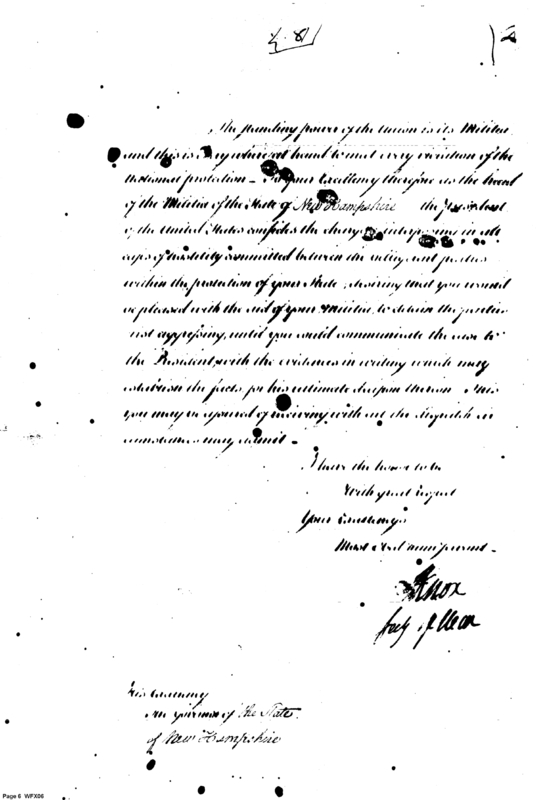 The standing power of the Union is its Militia
and this is every where at hand to meet every violation of the
national protection – To your Excellency therefore as the head
of the Militia of the State of New Hampshire the President
of the United States confides the charge of interposing in all
cases of hostility committed between the belligerent parties
within the protection of your State, desiring that you would
be pleased with the aid of your Militia, to detain the parties
first aggressing, until you could communicate the case to
the President, with the evidence in writing which may
establish the facts for his ultimate decision thereon. This
you may be assured of receiving with all the dispatch
circumstances may admit –
I have the honor to be
With great respect
Your Excellency's
Most Obed
Knox
Secy of War
His Excellency
The Governor of the State
of New Hampshire
Page 6 WFX06